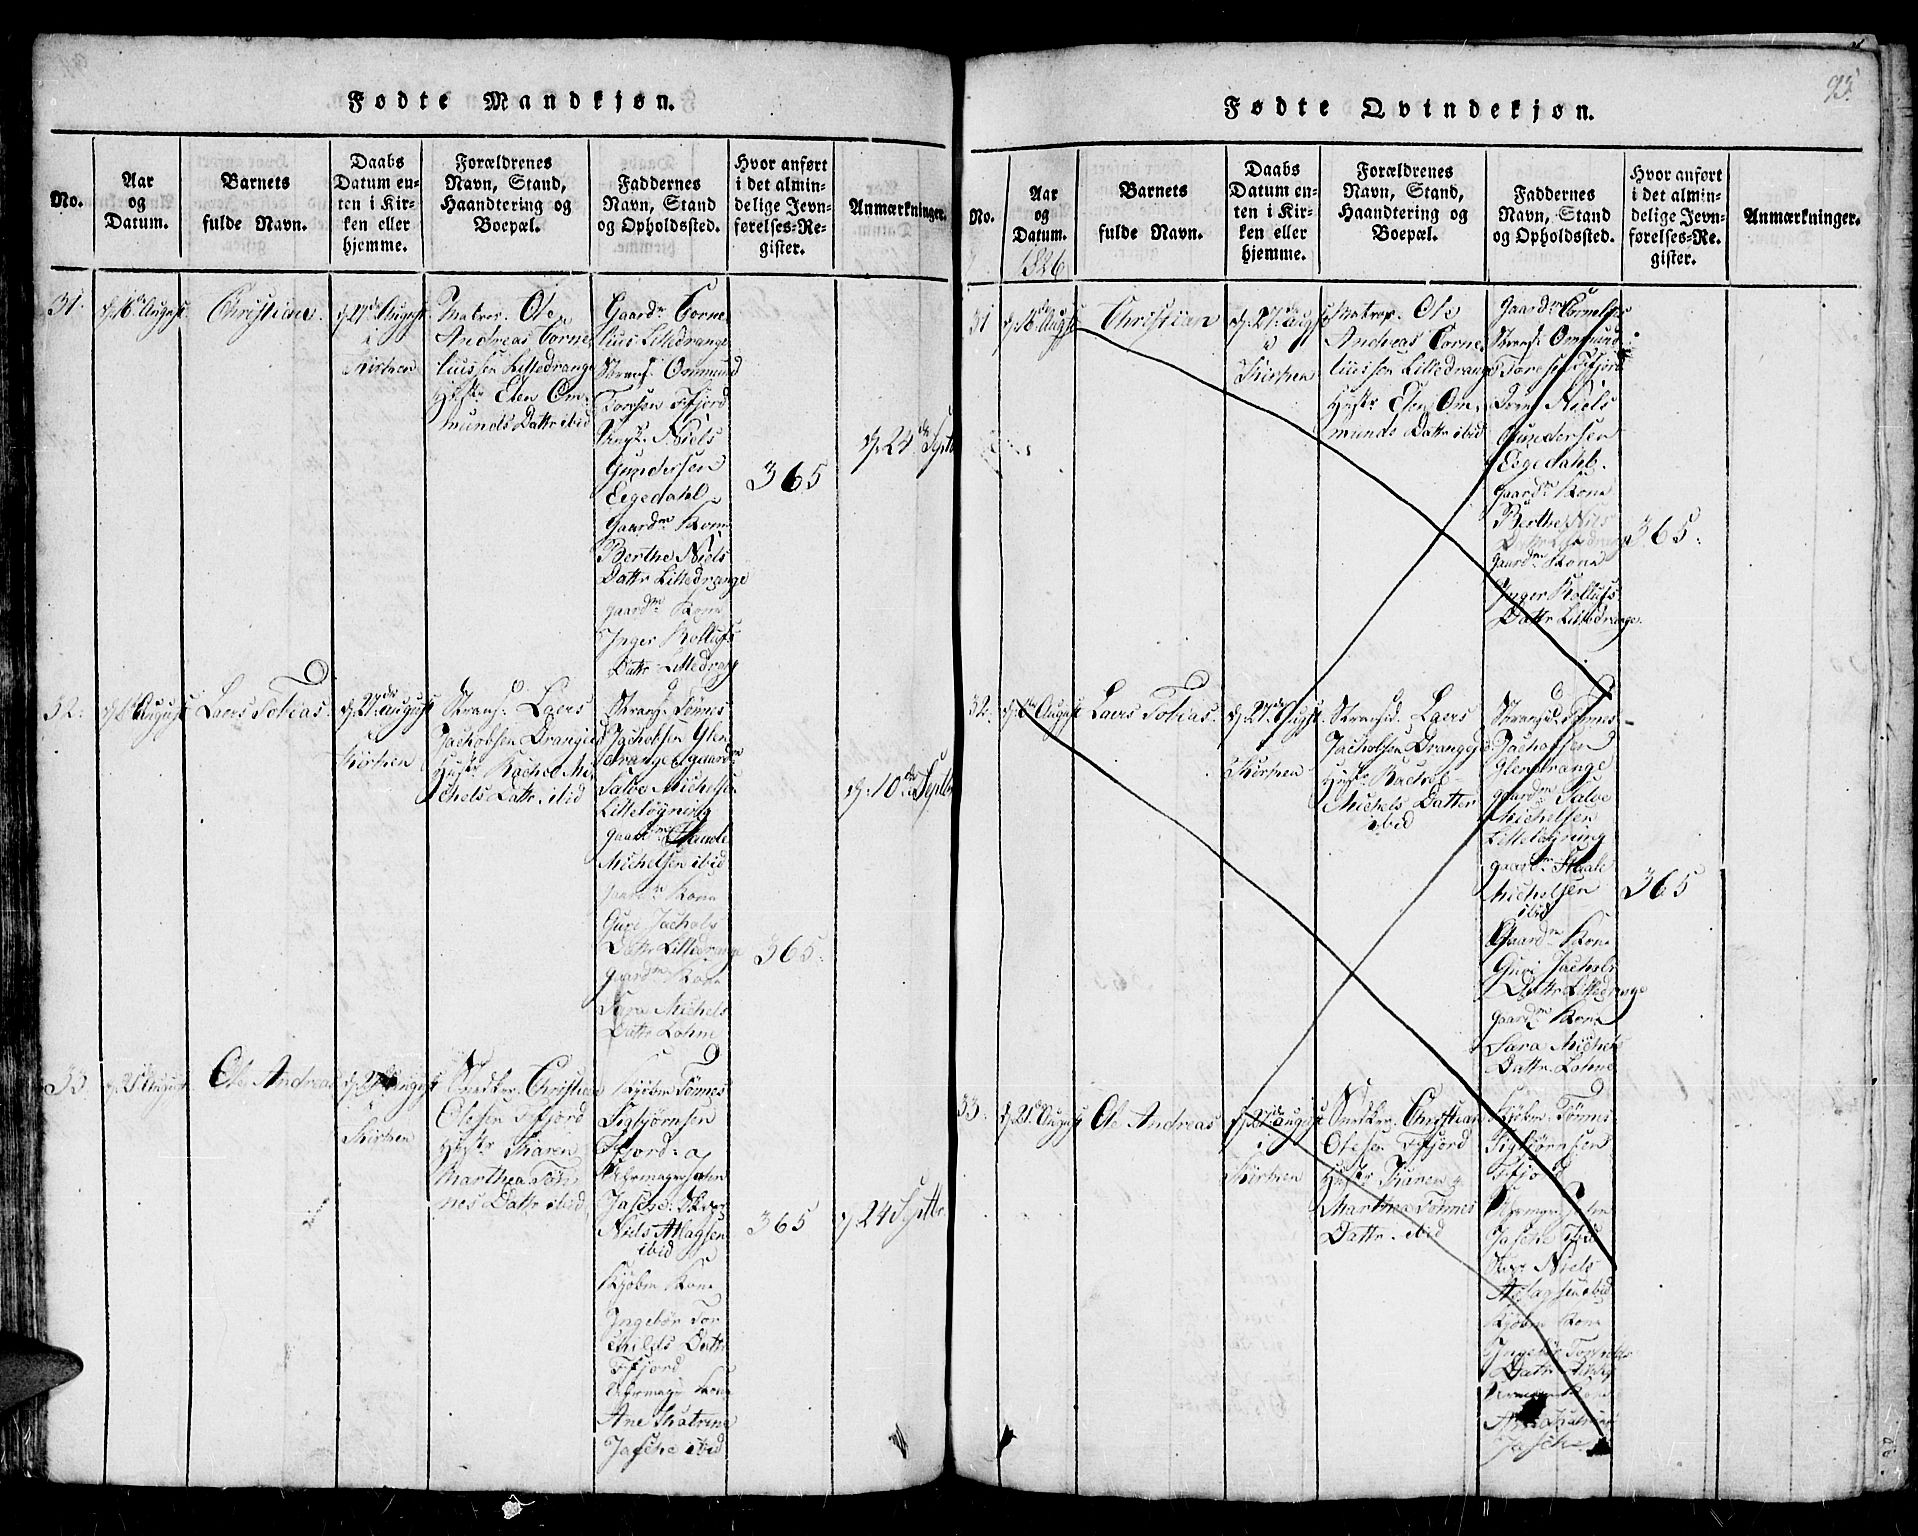 Fødte Mandkjøn.
No.
Aar
og
Datum.
Barnets
fulde Navn.
Daabs
Datum en-
ten i Kir-
ken eller
hjemme.
Forældrenes
Navn, Stand,
Haandtering og
Boepæl.
Faddernes
Navn, Stand
og Opholdssted.
Hvor anført
i det almin-
delige Jevn-
førelses-Re-
gister.
Anmærkninger.
31.
d. 16de August
Christian.
d. 27de August
i
Kirken
Matros. Ole
Andreas Corne
liussen Lilledrange
Hustr Elen Om-
munds Dattr ibid
Gaardm Corne
lius Lilledrange
Strans. Ommund
Toresen Ffjord
Niels
Gundersen
Eegedahl
Gaardm Kone
Berthe Niels
Dattr Lilledrange
gaardm Kone
Inger Rollufs
Dattr Lilledrang
365
d. 24de Septbr
32.
August
Laers Tobias.
d. 27de August
i
Kirken
Strans. Laers
Jachobsen Drangeid
Hustr Rachel Mi-
chels Dattr ibid
Strans. Tønnes
Jachobsen Glen
drange gaardm
Salve Michelsen
Lilleløgning
gaardm Staale
Michelsen ibid
gaardm Kone
Guri Jachobs
Dattr Lilledrange
gaardm Kone
Sara Michels
Dattr Lohne
365.
d. 10de Septbr
33.
d. 21de August
Ole Andreas
d. 27de August
i
Kirken
Snedker. Christian
Olesen Ffjord
Hustr Karen
Marthea Tøn
nes Dattr ibid
Kjøbm Tønnes
Sigbjørnsen
Ffjord.
Uhrmager
Jasche.
Niels Aslagsen
ibid
Kjøbm Kone
Ingebør Tor
kilds Dattr
Ffjord
Uhrmager Kone
Ane Katrine
Jasche ibid
365
d. 24 Septbr
95.
Fødte Qvindekjøn.
No.
Aar
og
Datum.
1826
Barnets
fulde Navn.
Daabs
Datum en-
ten i Kir-
ken eller
hjemme.
Forældrenes
Navn, Stand,
Haandtering og
Boepæl.
Faddernes
Navn, Stand
og Opholdssted.
Hvor anført
i det almin-
delige Jevn-
førelses-Re-
gister.
Anmærkninger.
31
d. 16de August
Christian
d. 27de August
i
Kirken
Matros. Ole
Andreas Corne
liussen Lilledrange
Hustr Elen Om-
munds Dattr ibid
Gaardm Cornelius
Strans. Ommund
Toresen Ffjord
Niels
Gundersen
Eegedahl.
gaardm Kone
Berthe Niels
Dattr Lilledrange
gaardm Kone
Inger Rollufs
Dattr Lilledrange.
365.
32.
August
Laers Tobias.
d. 27de August
i
Kirken
Stransid. Laers
Jachobsen Drangeid
Hustr Rachel
Michels Datter
ibid
Stransid. Tønnes
Jachobsen
Glendrange
gaardm Salve
Michelsen
Lilleløgning
gaardm Staale
Michelsen
ibid
Gaardm Kone
Guri Jachobs
Dattr Lilledrange
gaardm Kone
Sara Michels
Dattr Lohne
365
33.
d. 21de August
Ole Andreas
d. 27de August
i
Kirken
Snedker. Christian
Olesen Ffjord
Hustr Karen
Marthea Tønnes
Dattr. ibid
Kjøbm. Tønnes
Sigbjørnsen
Ffjord
Uhrmager
Jasche ibid
Niels
Aslagsen ibid
Kjøbm Kone
Ingebør Torkilds
Dattr
Kone
Ane Katrine
Jasche